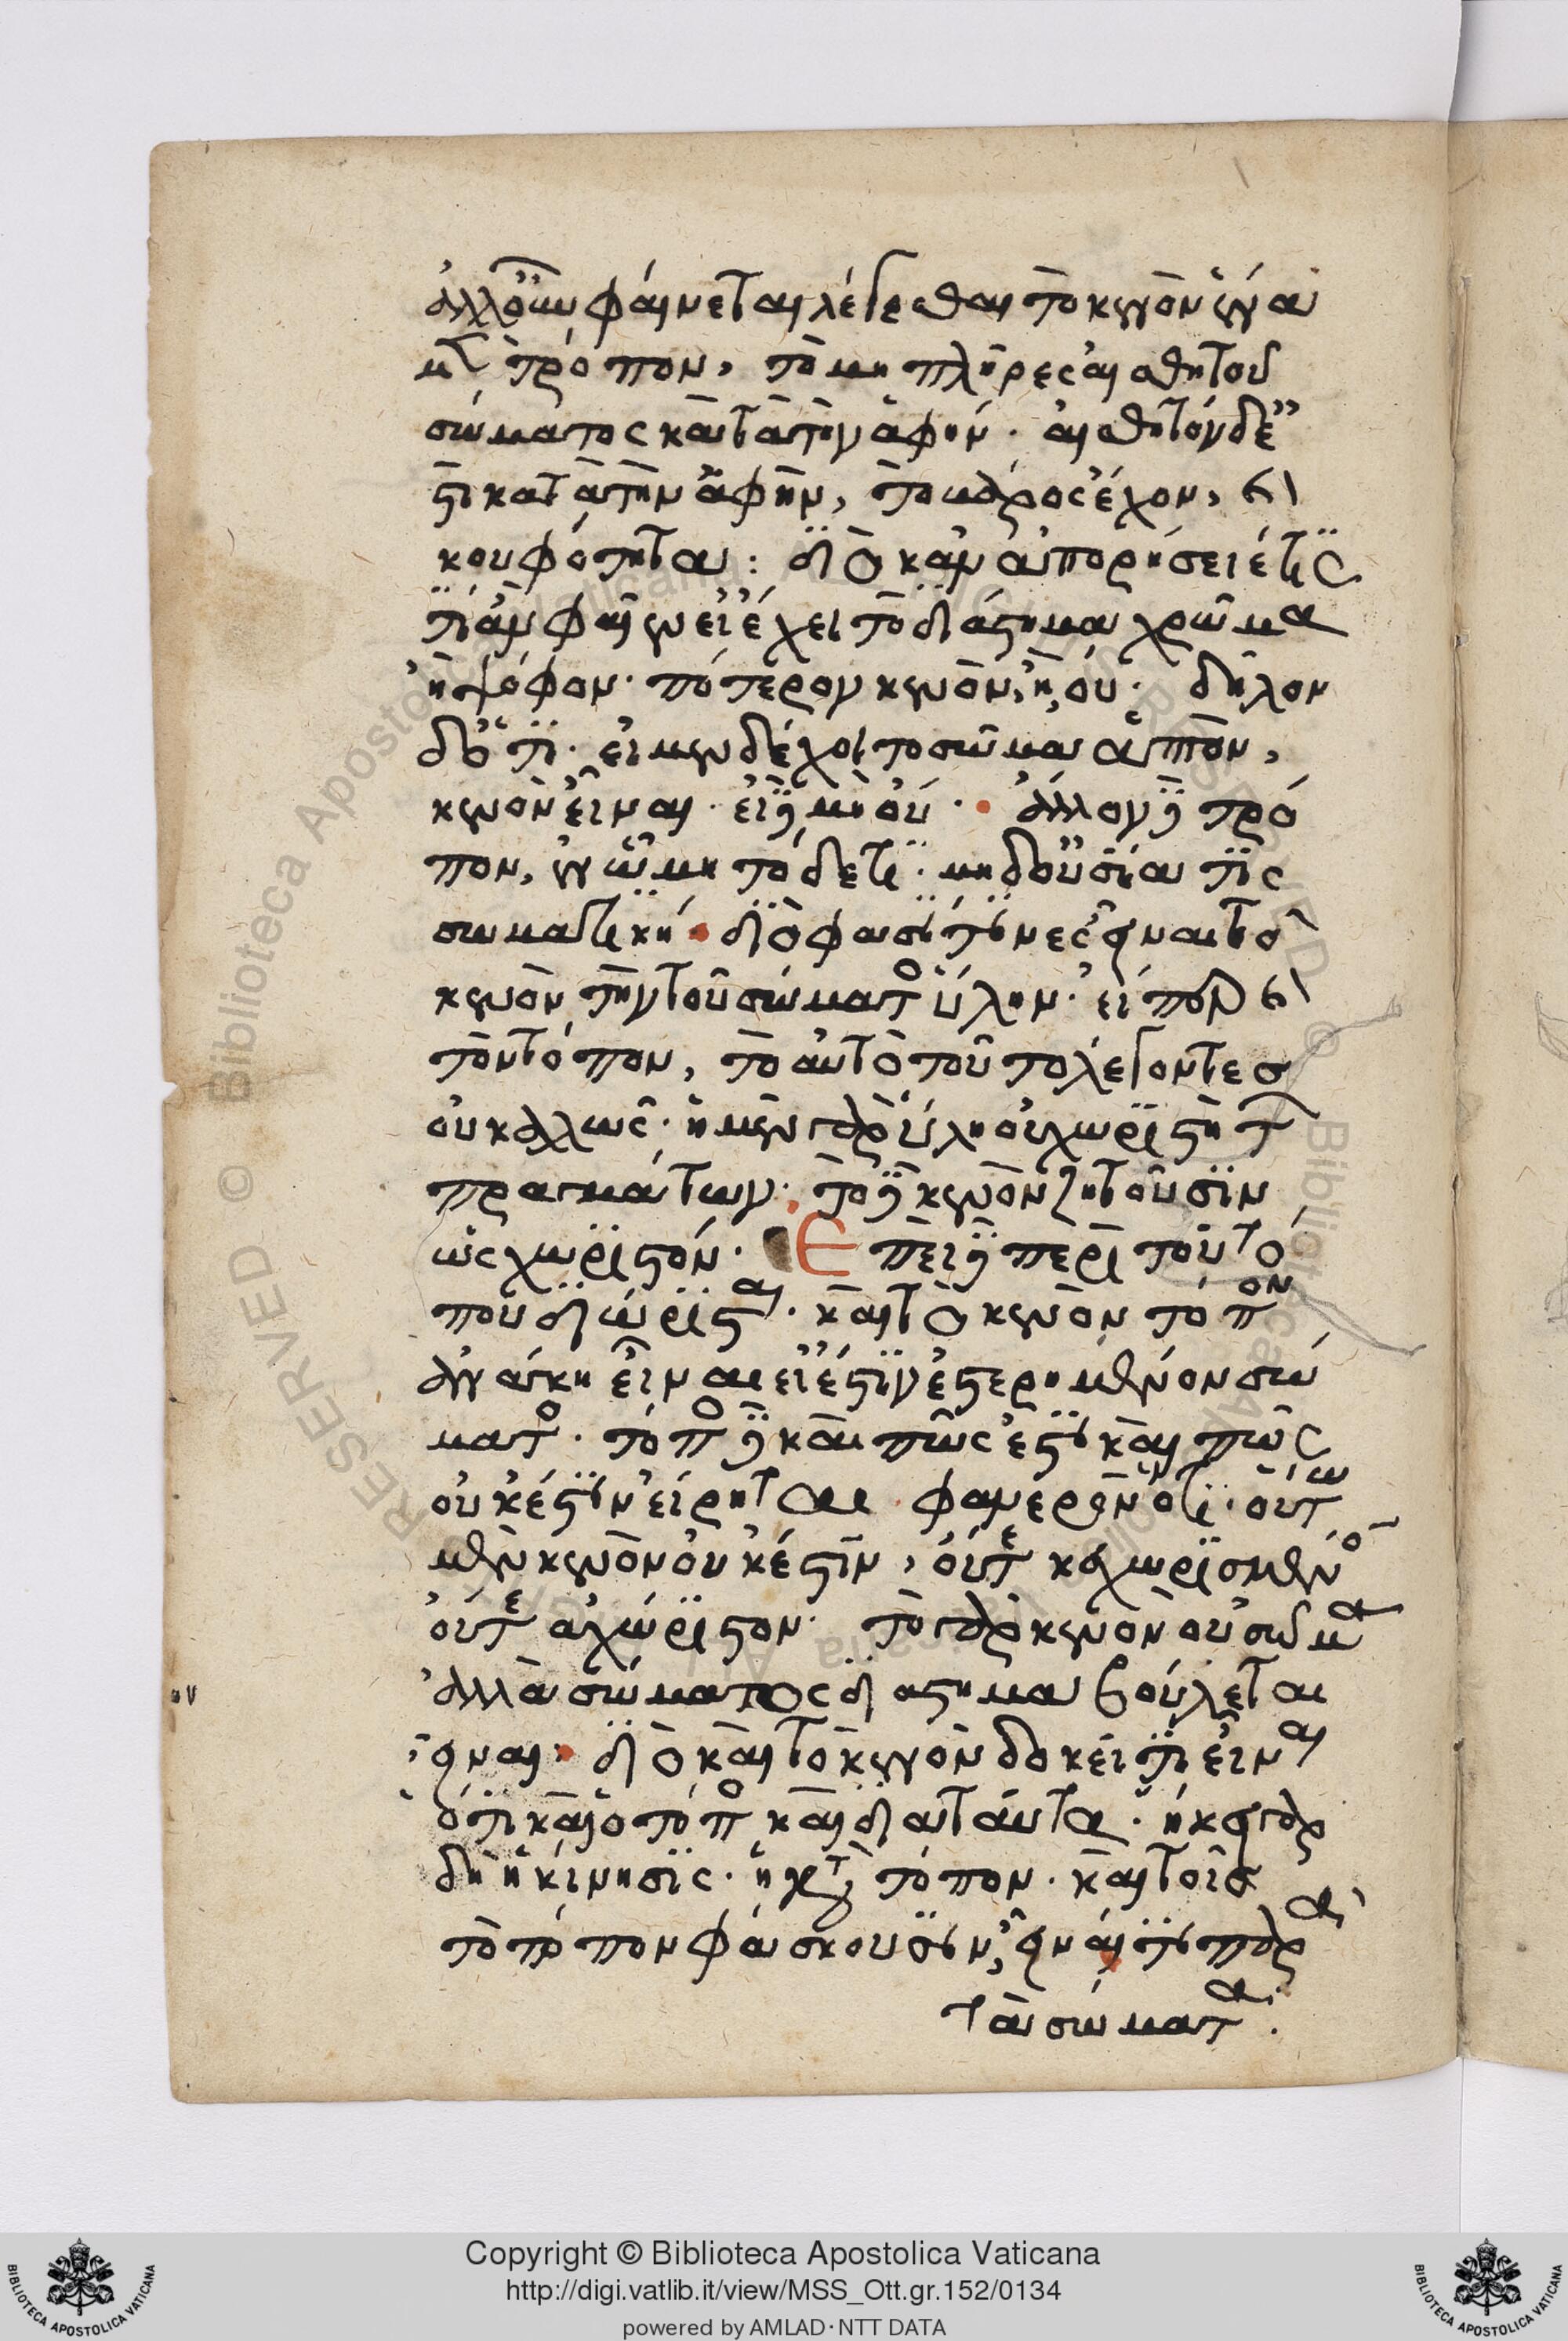 ἀλλ' οὖν φαίνεται λέγεσθαι τὸ κενὸν ἕνα
μὲν τρόπον, τὸ μὴ πλῆρες αἰσθητοῦ
σώματος κατὰ τὴν ἁφήν. αἰσθητὸν δέ
ἐστι κατὰ τὴν ἁφὴν, τὸ βάρος ἔχον, ἢ
κουφότητα: διὸ κἂν ἀπορήσειέ τις
τί ἂν φαῖεν εἰ ἔχει τὸ διάστημα χρῶμα
ἢ ψόφον. πότερον κενὸν, ἢ οὔ. δῆλον
δ' ὅτι. εἰ μὲν δέχοιτο σῶμα ἁπτὸν,
κενὸν εἶναι. εἰ δὲ μὴ οὔ. ἄλλον δὲ τρό
πον, ἐν ᾧ μὴ τόδε τι. μηδ' οὐσία τις
σωματική. διό φασί τινες εἶναι τὸ
κενὸν τὴν τοῦ σώματος ὕλην.
τὸν τόπον, τὸ αὐτὸ τοῦτο λέγοντες
οὐ καλῶς. ἡ μὲν γὰρ ὕλη οὐ χωριστὴ τῶν
πραγμάτων. τὸ δὲ κενὸν ζητοῦσιν
ὡς χωριστόν. Ἐπεὶ δὲ περὶ τοῦ τό
που διώρισται. καὶ τὸ κενὸν τόπον
ἀνάγκη εἶναι εἰ ἔστιν ἐστερημένον σώ
ματος. τόπος δὲ καὶ πῶς ἔστι καὶ πῶς
οὐκ ἔστιν εἴρηται. φανερὸν ὅτι. οὕτω
μὲν κενὸν οὐκ ἔστιν, οὔτε κεχωρισμένον
οὔτε ἀχώριστον. τὸ γὰρ κενὸν οὐ σῶμα
ἀλλὰ σώματος διάστημα βούλεται
εἶναι. διὸ καὶ τὸ κενὸν δοκεῖ τι εἶναι
ὅτι καὶ ὁ τόπος καὶ διὰ ταῦτα. ἥκει γὰρ
δὴ ἡ κίνησις. ἡ κατὰ τόπον. καὶ τοῖς
τὸ τόπον φάσκουσιν, εἶναί τι παρὰ
τὰ σώματα.
Copyright © Biblioteca Apostolica Vaticana
http://digi.vatlib.it/view/MSS_Ott.gr.152/0134
powered by AMLAD·NTT DATA